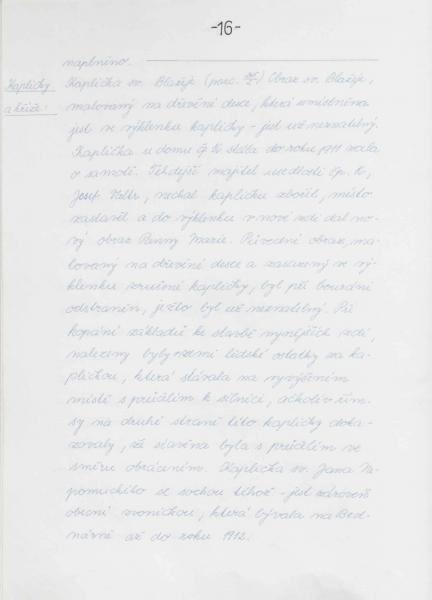 -16-
naplněno.
Kapličky a kříže:
Kaplička sv. Blažeje (parc. ) Obraz sv. Blažeje,
malovaný na dřevěné desce, která umístněna
jest ve výklenku kapličky - jest už neznatelný.
Kaplička u domu čp. stála do roku 1911 zcela
o samotě. Tehdejší majitel usedlosti čp. ,
Josef , nechal kapličku zbořit, místo
zastavěl a do výklenku v nové zdi dal no-
vý obraz Panny Marie. Původní obraz, ma-
lovaný na dřevěné desce a zasazený ve vý-
klenku zrušené kapličky, byl při bourání
odstraněn, ježto byl už neznatelný. Při
kopání základů ke stavbě nynějších zdí,
nalezeny byly v zemi lidské ostatky za ka-
pličkou, která stávala na vyvýšeném
místě s průčelím k silnici, ačkoliv řím-
sy na druhé straně této kapličky doka-
zovaly, že stavěna byla s průčelím ve
směru obráceném. Kaplička sv. Jana Ne-
pomuckého se sochou téhož - jest zároveň
obecní zvoničkou, která bývala na Bed-
nárně až do roku 1912.